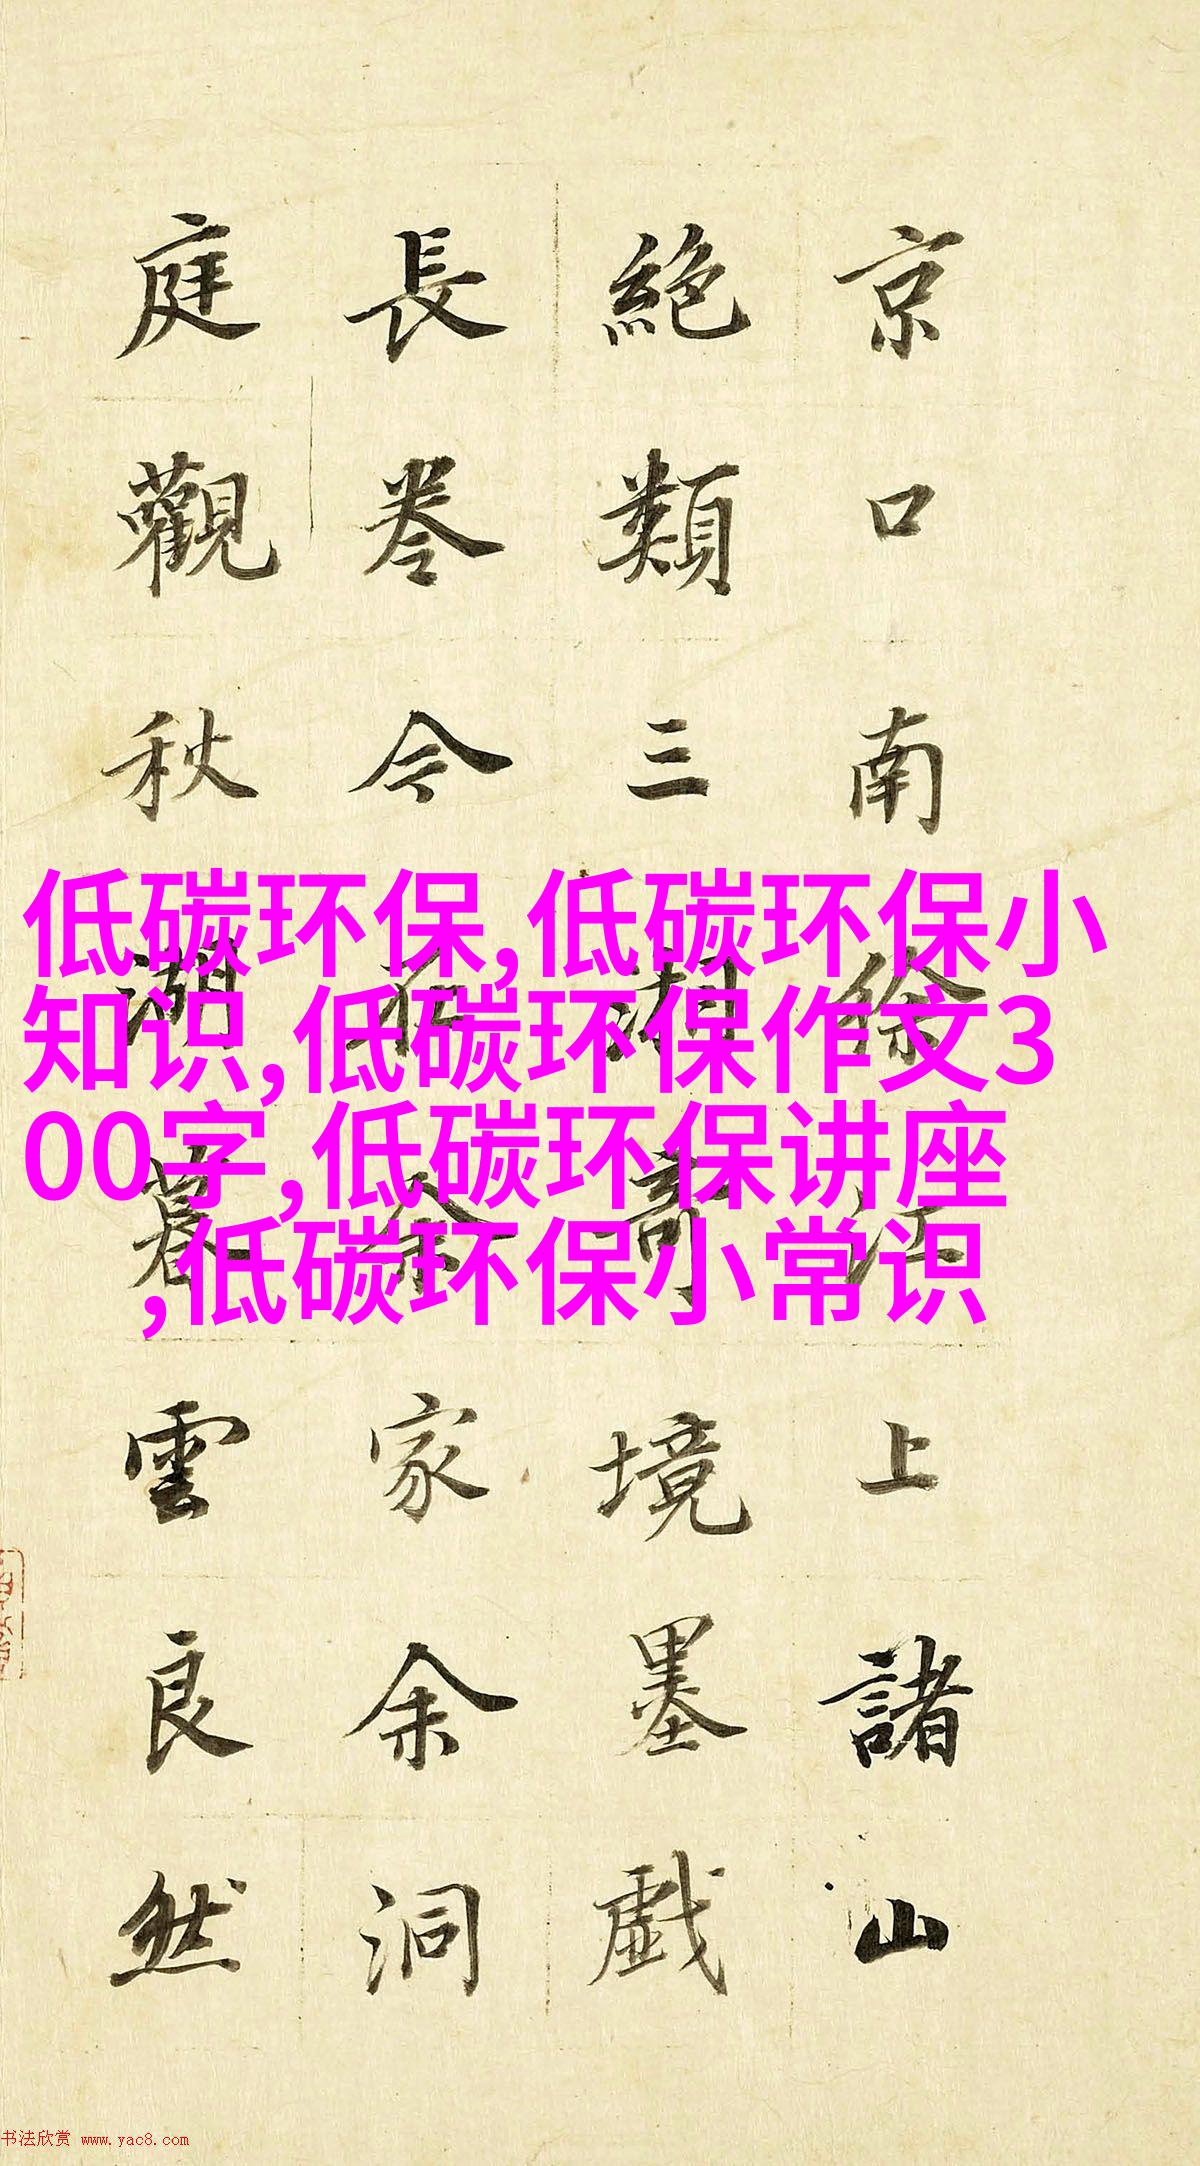 京口南徐江上諸山
絕類三湘奇境墨戲
長卷今在余家余洞
庭觀秋湖暮雲良然
低碳环保,低碳环保小
知识,低碳环保作文3
00字,低碳环保讲座
,低碳环保小常识
书法欣赏 www.yac8.com